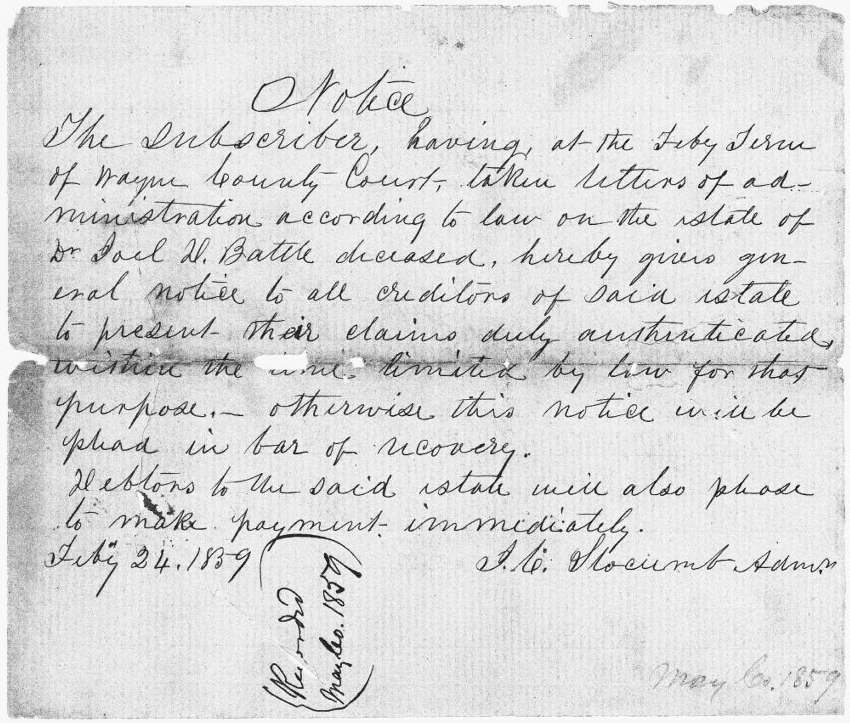 Notice
The Subscriber, having, at the Feby Term
of Wayne County Court, taken letters of ad-
ministration according to law on the estate of
Dr Joel H. Battle deceased, hereby gives gen-
eral notice to all creditors of said estate
to present their claims duly authenticated,
within the time limited by law for that
purpose.— otherwise this notice will be
plead in bar of recovery.
Debtors to the said estate will also please
to make payment immediately.
Feby 24, 1859
J. C. Slocumb Admr.
Recorded
May Co. 1859
May Co. 1859